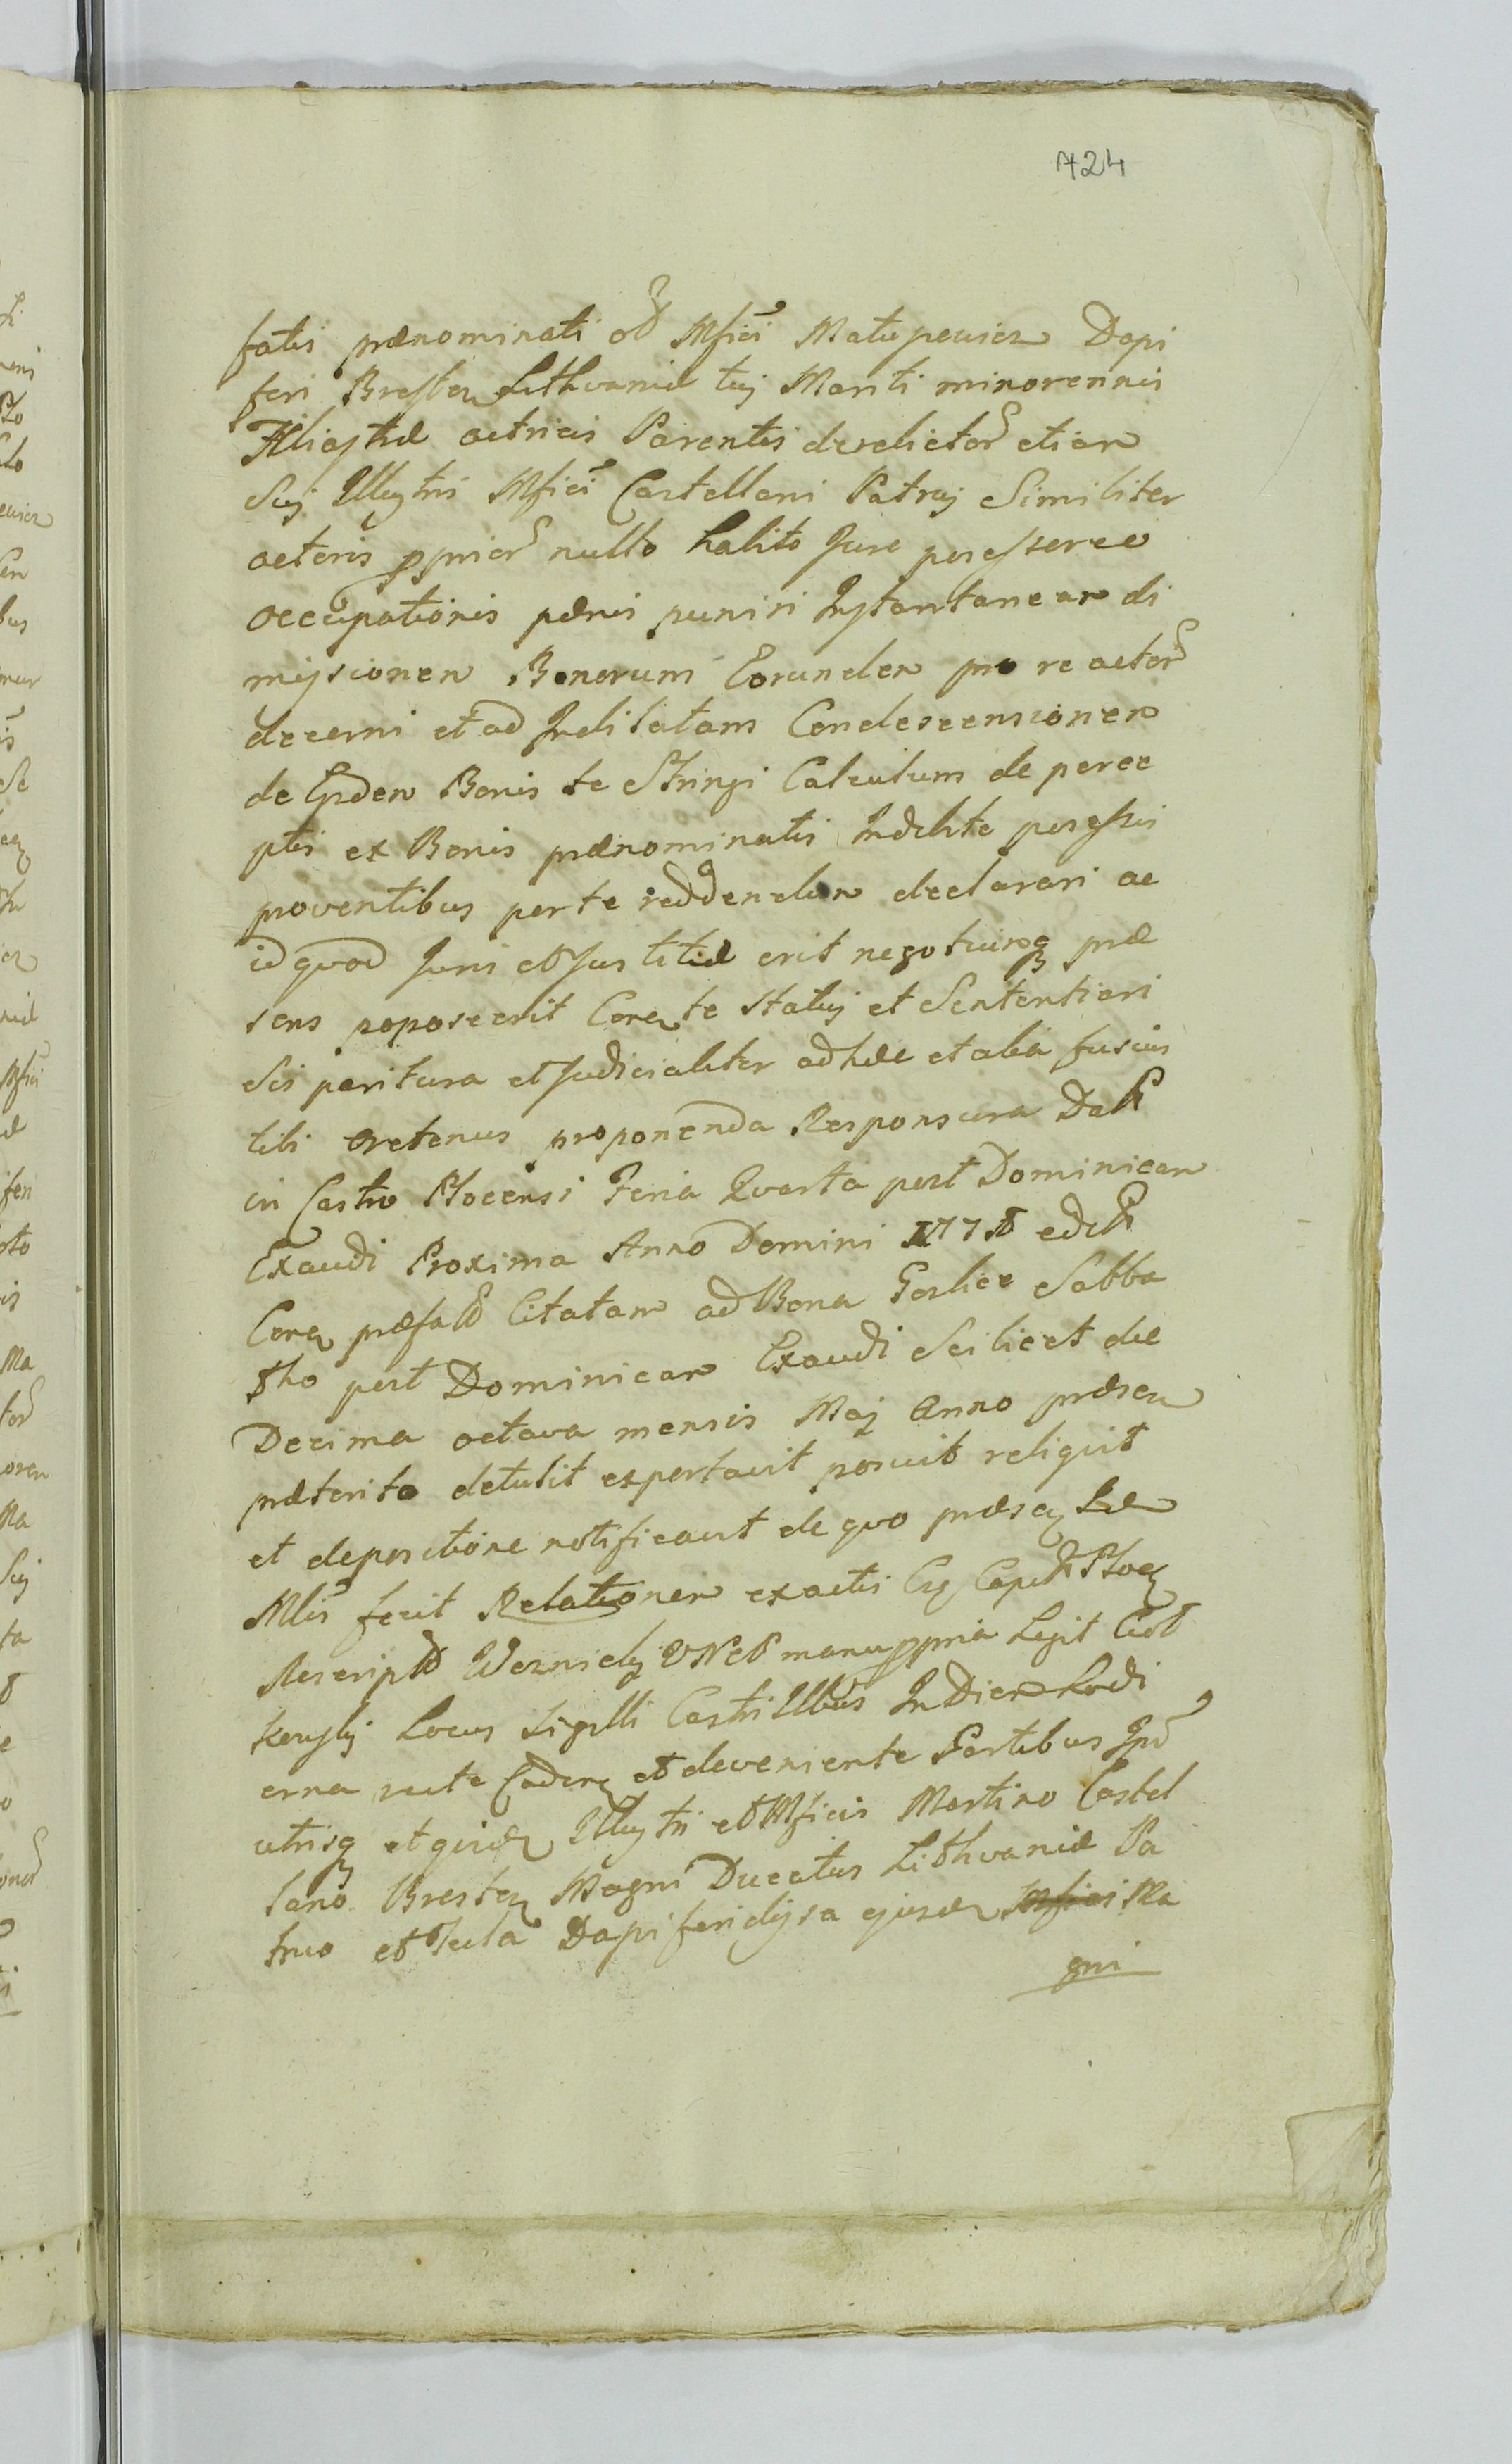 424
fatis prænominati olỡ Mfici Matuszewicz Dapi
feri Bresten Lithvaniæ tuj Mariti minorennis
Filiastræ actricis Parentis derelictor etiam
Suj Illustris Mfici Castellani Patruj Similiter
actoris pprior nullo habito Jure possessaree
occupationis pænis puniri Instantaneam di
missionem Bonorum Eorundem pro re actor
decerni et ad Indilatam Condescensionem
de Eisdem Bonis te Stringi Calculum de perce
ptis ex Bonis prænominatis Indebite possessis
proventibus per te reddendum declarari ac
id quod Juris et Justitiæ erit negotiumq præ
sens poposcerit Coram te Statuj et Sententiari
Sis paritura et Judicialiter ad hæc et alia fusius
tibi oretenus proponenda Responsura Datt
in Castro Plocensi Feria Quarta post Dominicam
Exaudi Proxima Anno Domini 177
Coram præfatt Citatam ad Bona Goslice Sabba
tho post Dominicam Exaudi Scilicet die
Decima octava mensis Maj Anno præsen
præterito detulit exportavit posuit reliquit
et depositione notificavit de quo præsen
Mlis fecit Relationem exactis Cas Capit Ploc
Rescriptt manu ppria Legit
Locus Sigilli Castri In Diem hodi
erna recte Caden et deveniente Partibus Ips
utrisq et quidem Illustri et Mficis Martino Castel
lano Bresten Magni Ducatus Lithvaniæ Pa
truo et Tecla Dapiferidissa ejusdem Mfici Ma
gni